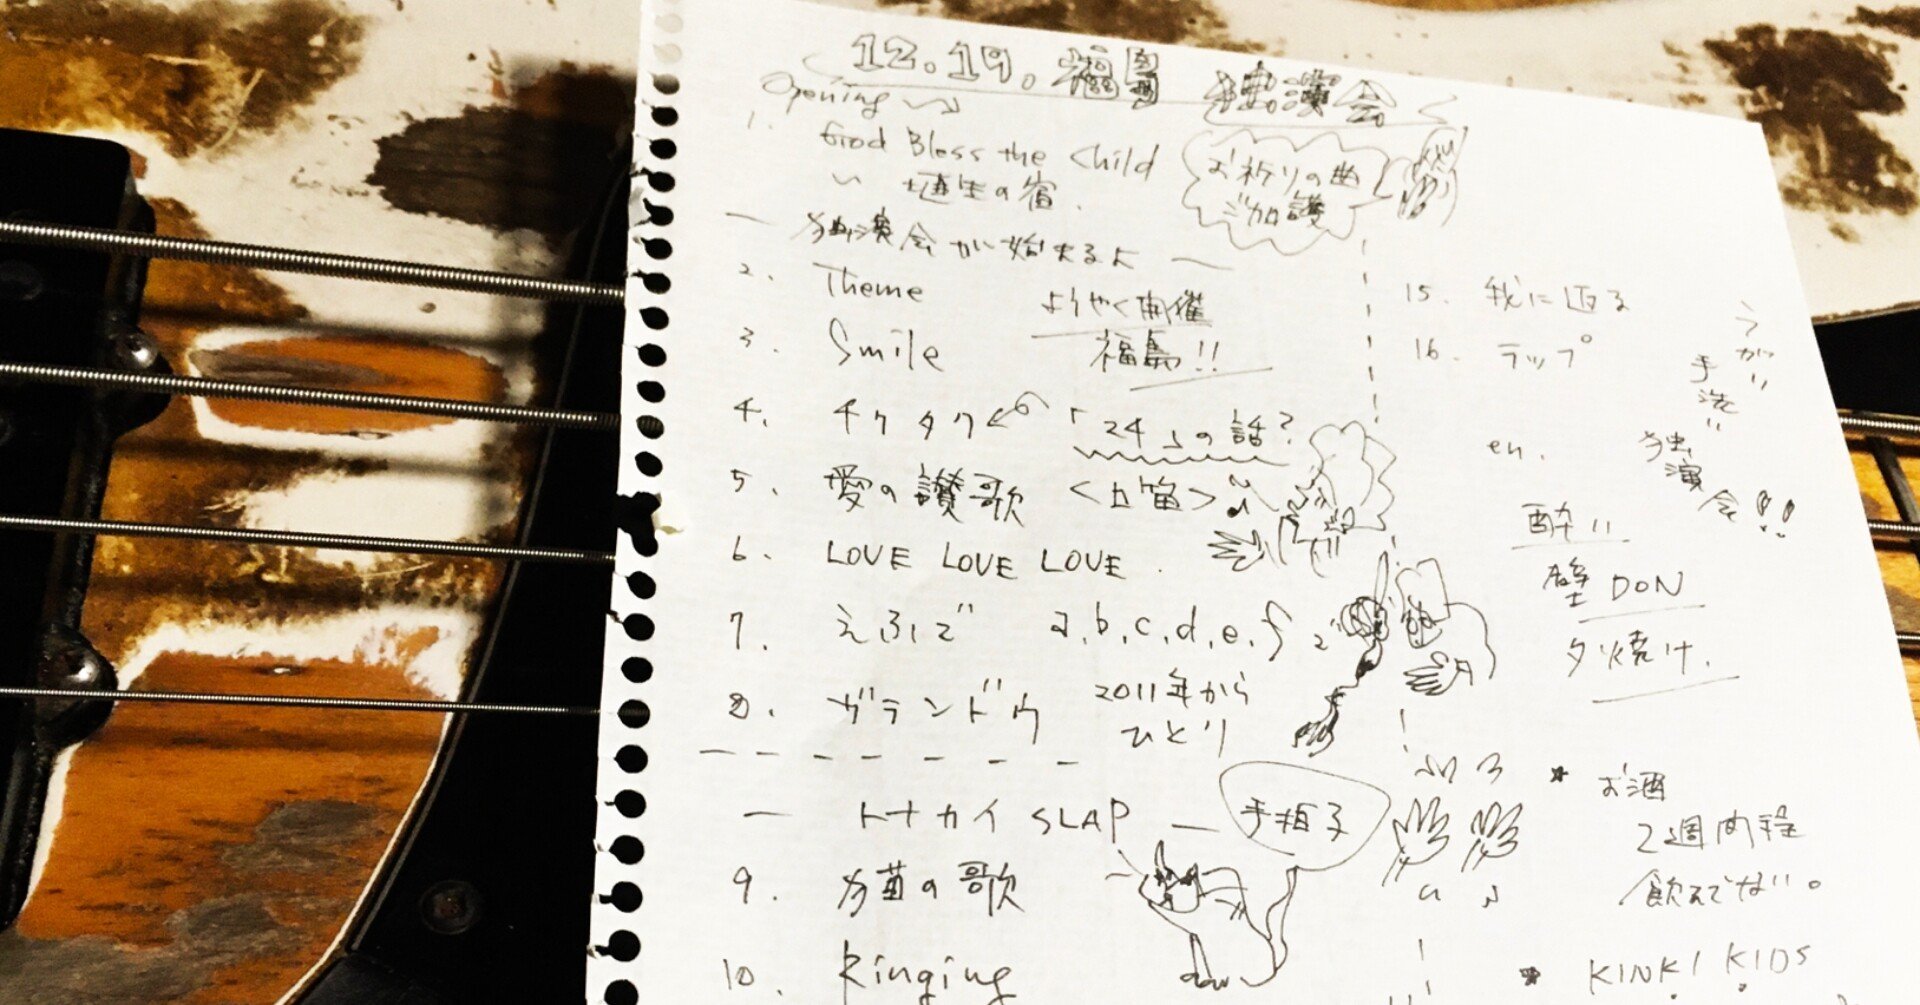 12.19. 福島 独演会
Opening
1. God Bless the Child
〜 埴生の宿.
お祈りの曲
ご加護
— 独演会が始まるよ —
2. Theme
ようやく開催
3. Smile
福島!!
4. チクタク
「24」の話?
5. 愛の讃歌 <口笛>
6. LOVE LOVE LOVE.
7. えふで a,b,c,d,e,f で
8. ガランドウ
2011年から
ひとり
— トナカイ SLAP —
手拍子
9. 猫の歌
10. Ringing
15. 我に返る
16. ラップ
うがい
手洗い
独演会!!
en.
酔い
壁DON
夕焼け.
* お酒
2週間程
飲んでない。
* KINKI KIDS